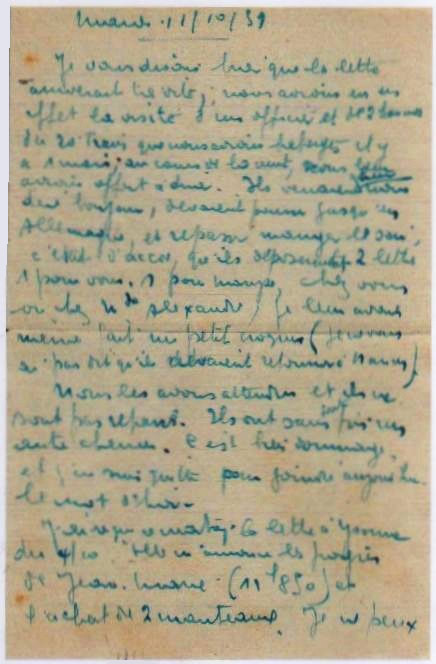 11/10/39
Je vous disais hier que les lettres
arriveraient très vite, nous avions eu en
effet la visite d'un officier et de 2 hommes
du 20 train que nous avions hébergés il y
a 1 mois, au cours de la nuit, nous leur
avions offert à dîner. Ils venaient nous
dire bonjour, devaient pousser jusqu'en
Allemagne, et repasser manger le soir,
c'était d'accord, qu'ils déposeraient 2 lettres
1 pour vous. 1 pour manger, chez vous
ou chez Alexandre, Je leur avais
même fait un petit croquis (Je ne vous
ai pas dit qu'ils devaient retourner à
Nous les avons attendus et ils ne
sont pas repassés. Ils ont sans doute pris un
autre chemin. C'est très dommage,
et j'en suis quitte pour joindre aujourd'hui
le mot d'hier.
J'ai reçu ce matin la lettre d'Yvonne
du 4/10. Elle m'annonce les progrès
de Jean-Marie (11k850) et
l'achat de 2 manteaux. Je ne peux